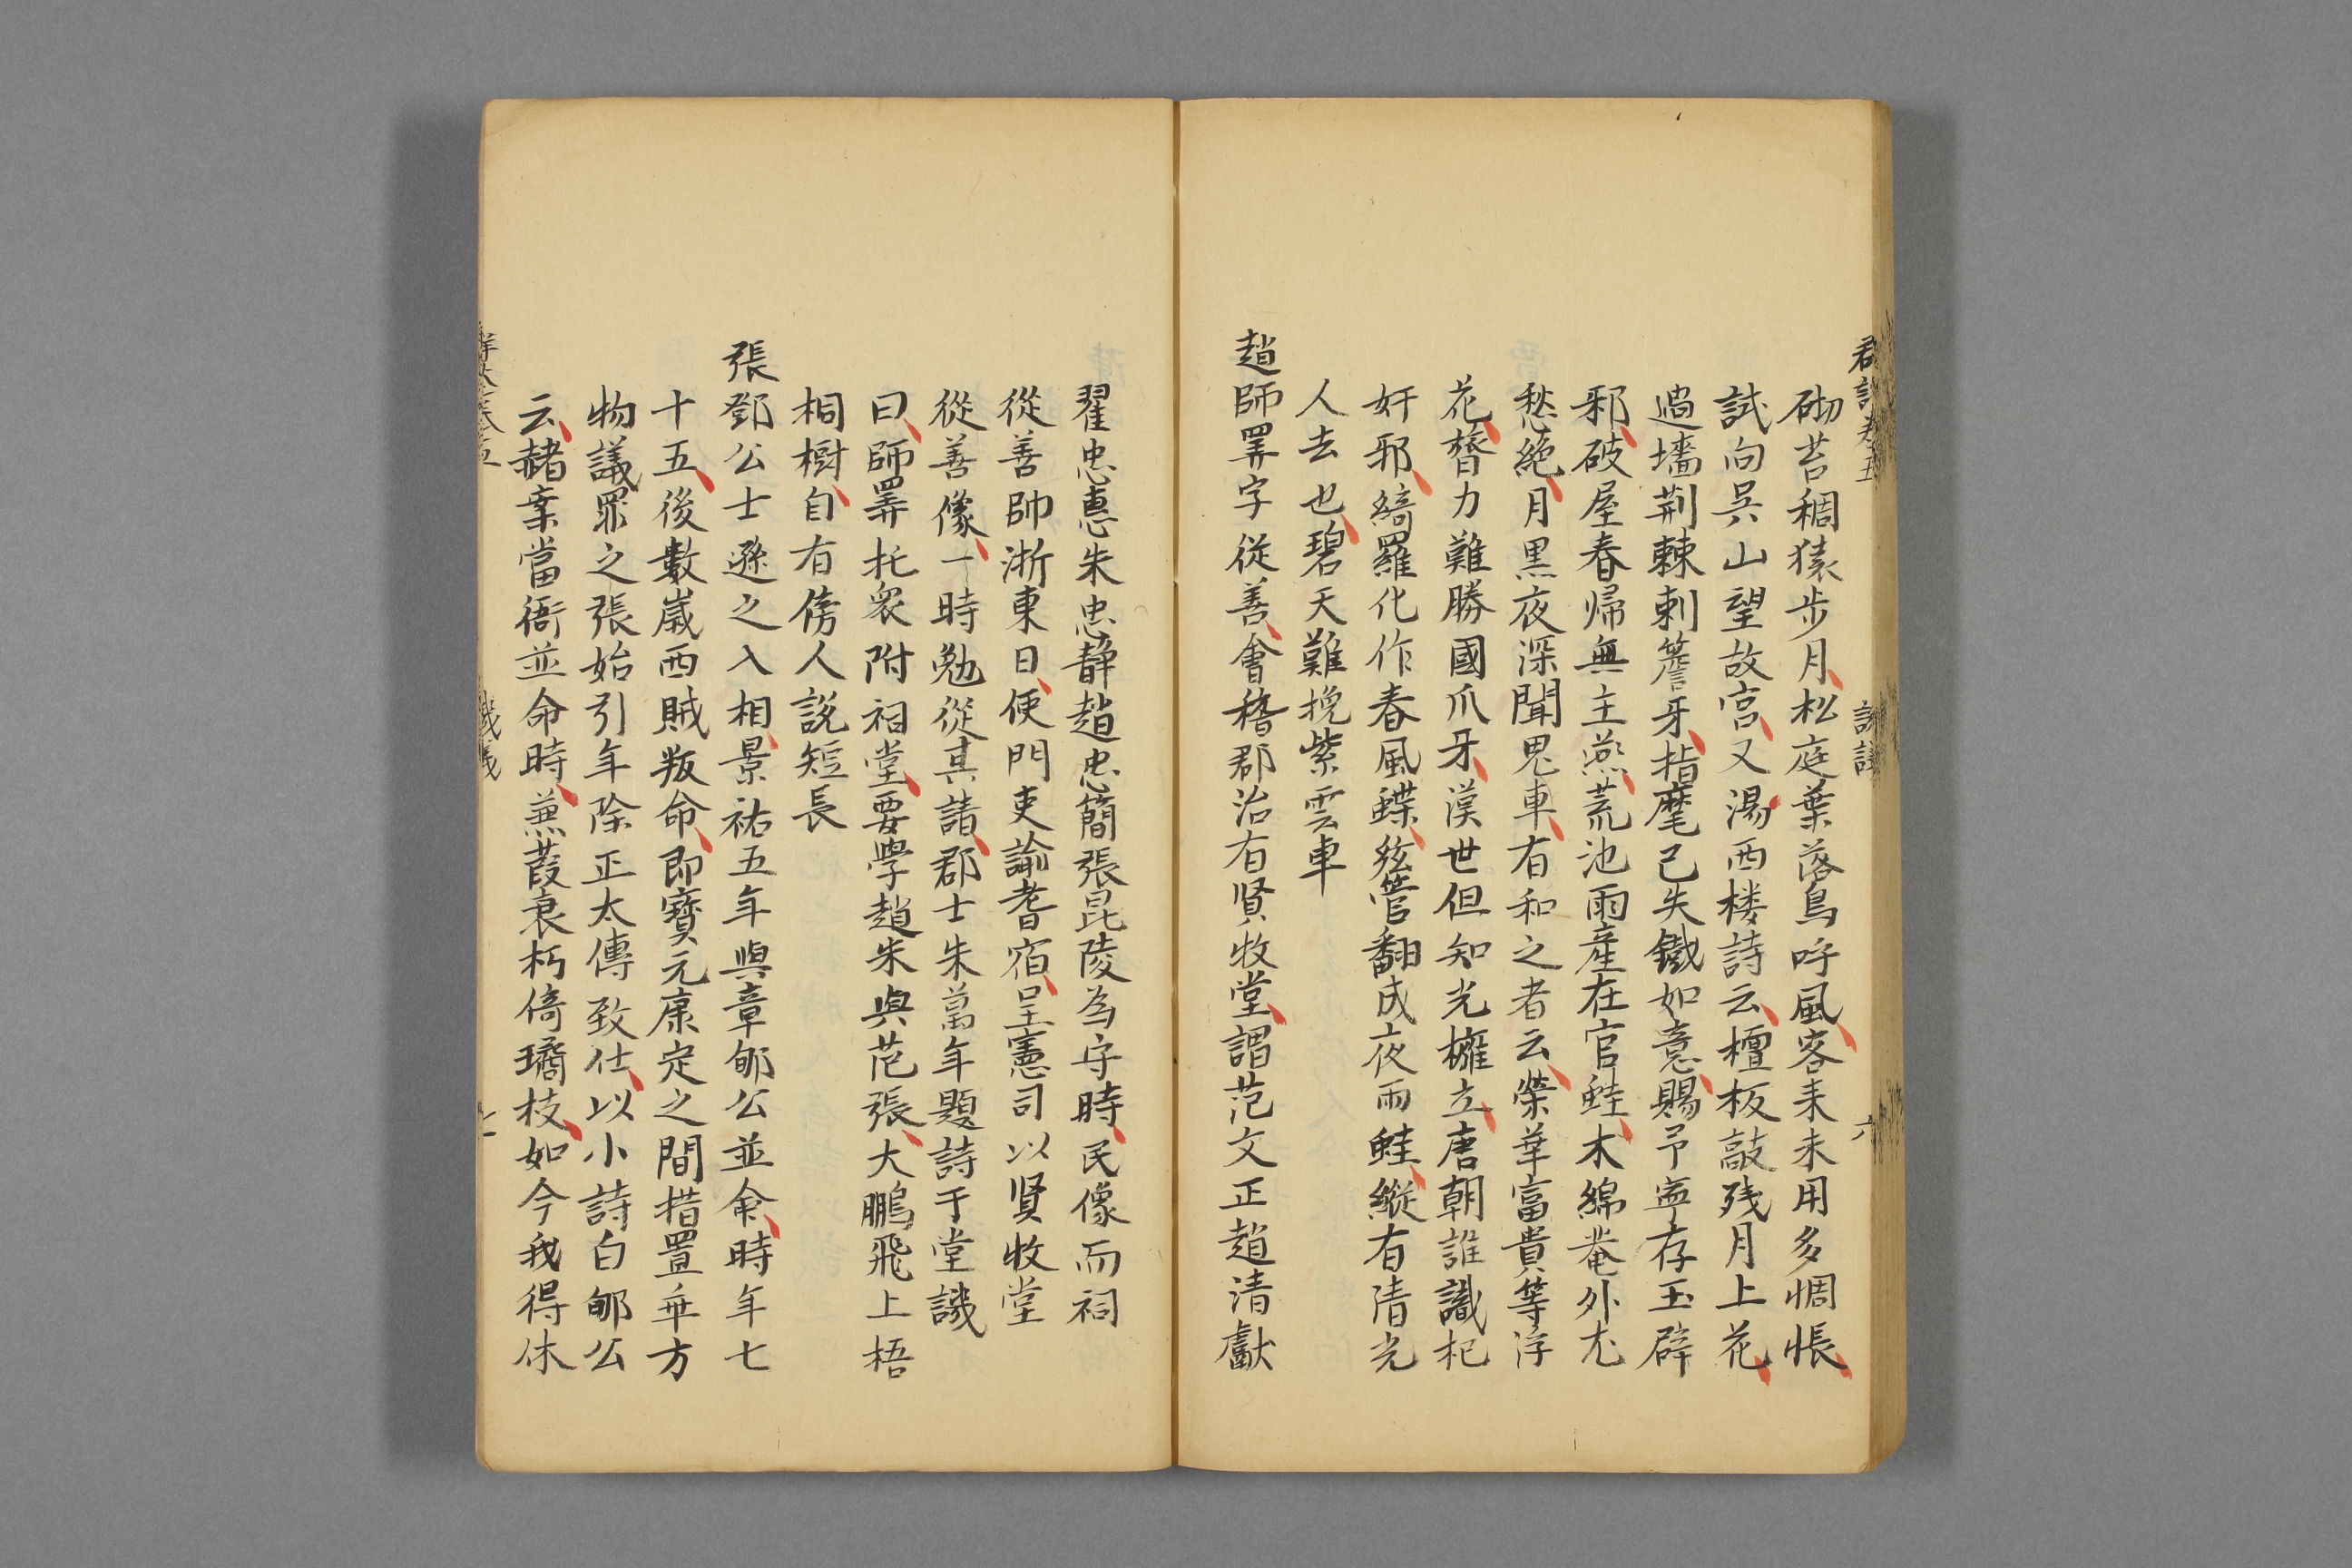 砌苔稠猿步月松庭葉落鳥呼風客来未用多惆悵
試向吳山望故宮又湯西楼詩云檀板敲残月上花
過墻荆棘刺簷牙指麾已失鐵如意賜予寧存玉辟
邪破屋春帰無主燕荒池雨産在官蛙木綿菴外尤
愁絶月黒夜深聞鬼車有和之者云榮華富貴等浮
花膂力難勝國爪牙漢世但知光擁立唐朝誰識杞
奸邪綺羅化作春風蝶弦管翻成夜雨蛙縱有清光
人去也碧天難挽紫雲車
趙師睪字從善會稽郡治有賢牧堂謂范文正趙清獻
翟忠惠朱忠靜趙忠簡張昆陵為守時民像而祠
從善帥浙東日便門吏諭耆宿呈憲司以賢牧堂
從善像一時勉從其請郡士朱萬年題詩于堂譏
曰師睪托衆附祠堂要學趙朱與范張大鵬飛上梧
桐樹自有傍人説短長
張鄧公士遜之入相景祐五年與章郇公並命時年七
十五後數歲西賊叛命即寶元康定之間措置乖方
物議罪之張始引年除正太傅致仕以小詩白郇公
云赭案當衙並命時蒹葭衰朽倚瓊枝如今我得休